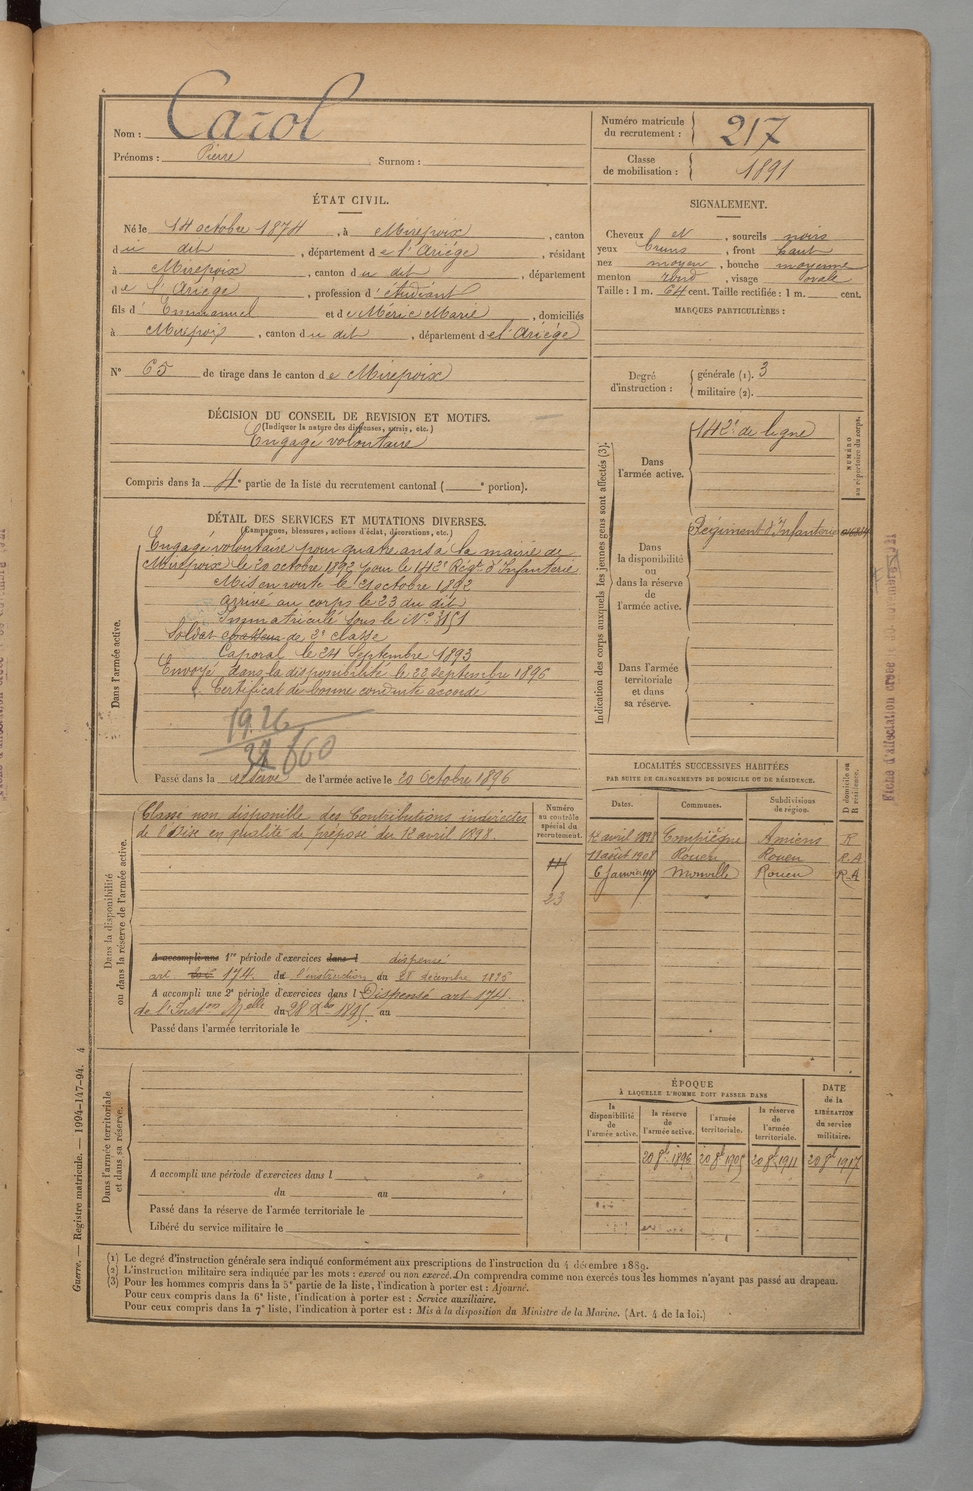 Nom : Carol
Prénoms : Pierre Surnom :
Numéro matricule du recrutement : 217
Classe de mobilisation : 1891
ÉTAT CIVIL.
Né le 14 octobre 1874, à Mirepoix, canton
du dit, département de l'Ariège, résidant
à Mirepoix, canton du dit, département
de l'Ariège, profession d'étudiant
fils d'Emmanuel et de Méric Marie, domiciliés
à Mirepoix, canton du dit, département de l'Ariège
N° 65 de tirage dans le canton de Mirepoix
SIGNALEMENT.
Cheveux et, sourcils noirs
yeux bruns, front haut
nez moyen, bouche moyenne
menton rond, visage ovale
Taille : 1 m. 64 cent. Taille rectifiée : 1 m. cent.
MARQUES PARTICULIÈRES :
Degré d'instruction : générale (1). 3
militaire (2).
DÉCISION DU CONSEIL DE REVISION ET MOTIFS.
(Indiquer la nature des dispenses, sursis, etc.)
Engagé volontaire
Compris dans la 4e partie de la liste du recrutement cantonal ( e portion).
DÉTAIL DES SERVICES ET MUTATIONS DIVERSES.
(Campagnes, blessures, actions d'éclat, décorations, etc.)
Dans l'armée active.
Engagé volontaire pour quatre ans à la mairie de
Mirepoix le 20 octobre 1892 pour le 142e Régt d'Infanterie
Mis en route le 21 octobre 1892
arrivé au corps le 23 du dit
Immatriculé sous le No 3151
Soldat de 2e classe
Caporal le 24 Septembre 1893
Envoyé dans la disponibilité le 22 septembre 1896
Certificat de bonne conduite accordé
Passé dans la réserve de l'armée active le 20 Octobre 1896
Indication des corps auxquels les jeunes gens sont affectés (3).
NUMÉRO au répertoire du corps.
Dans l'armée active.
142e de ligne
Dans la disponibilité ou dans la réserve de l'armée active.
Régiment d'Infanterie
Dans l'armée territoriale et dans sa réserve.
Fiche d'affectation créée le
Dans la disponibilité ou dans la réserve de l'armée active.
Classe non disponible des Contributions indirectes
de l'Oise en qualité de préposé du 12 avril 1898.
Numéro au contrôle spécial du recrutement.
23
A accompli une 1re période d'exercices dans l dispensé
art. 174. de l'instruction du 28 décembre 1895
A accompli une 2e période d'exercices dans l Dispensé art. 174.
de l'Inston Melle du 28 Xbre 1895 au
Passé dans l'armée territoriale le
LOCALITÉS SUCCESSIVES HABITÉES
PAR SUITE DE CHANGEMENTS DE DOMICILE OU DE RÉSIDENCE.
Dates. Communes. Subdivisions de région. D domicile ou R résidence.
12 avril 1898 Compiègne Amiens R
11 août 1908 Rouen Rouen R.A
6 Janvier Monville Rouen R.A
Dans l'armée territoriale et dans sa réserve.
A accompli une période d'exercices dans l
du au
Passé dans la réserve de l'armée territoriale le
Libéré du service militaire le
ÉPOQUE
À LAQUELLE L'HOMME DOIT PASSER DANS
la disponibilité de l'armée active. la réserve de l'armée active. l'armée territoriale. la réserve de l'armée territoriale. DATE de la LIBÉRATION du service militaire.
20 8bre 1896 20 8bre 1905 20 8bre 1911 20 8bre 1917
(1) Le degré d'instruction générale sera indiqué conformément aux prescriptions de l'instruction du 4 décembre 1889.
(2) L'instruction militaire sera indiquée par les mots : exercé ou non exercé. On comprendra comme non exercés tous les hommes n'ayant pas passé au drapeau.
(3) Pour les hommes compris dans la 5e partie de la liste, l'indication à porter est : Ajourné.
Pour ceux compris dans la 6e liste, l'indication à porter est : Service auxiliaire.
Pour ceux compris dans la 7e liste, l'indication à porter est : Mis à la disposition du Ministre de la Marine. (Art. 4 de la loi.)
Guerre. — Registre matricule. — 1994-147-94. 4